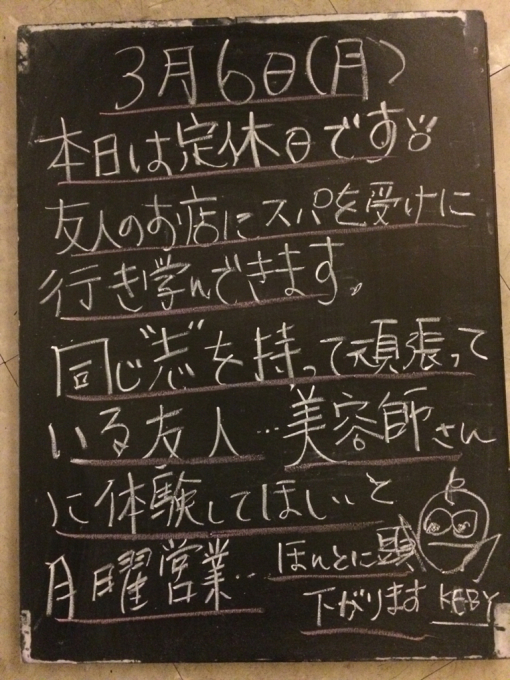 3月6日(月)
本日は定休日です
友人のお店にスパを受けに
行き学んできます。
同じ"志"を持って頑張って
いる友人…美容師さん
に体験してほしいと
月曜営業…ほんとに頭
下がります KEBY